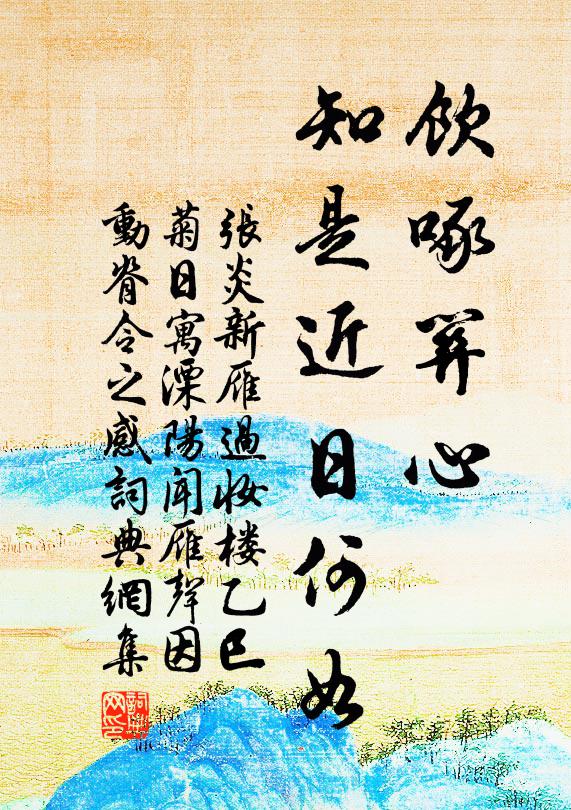 飲啄關心
知是近日何如
張炎新雁過妝樓乙巳
菊日寓溧陽聞雁聲因
動脊令之感詞典網集